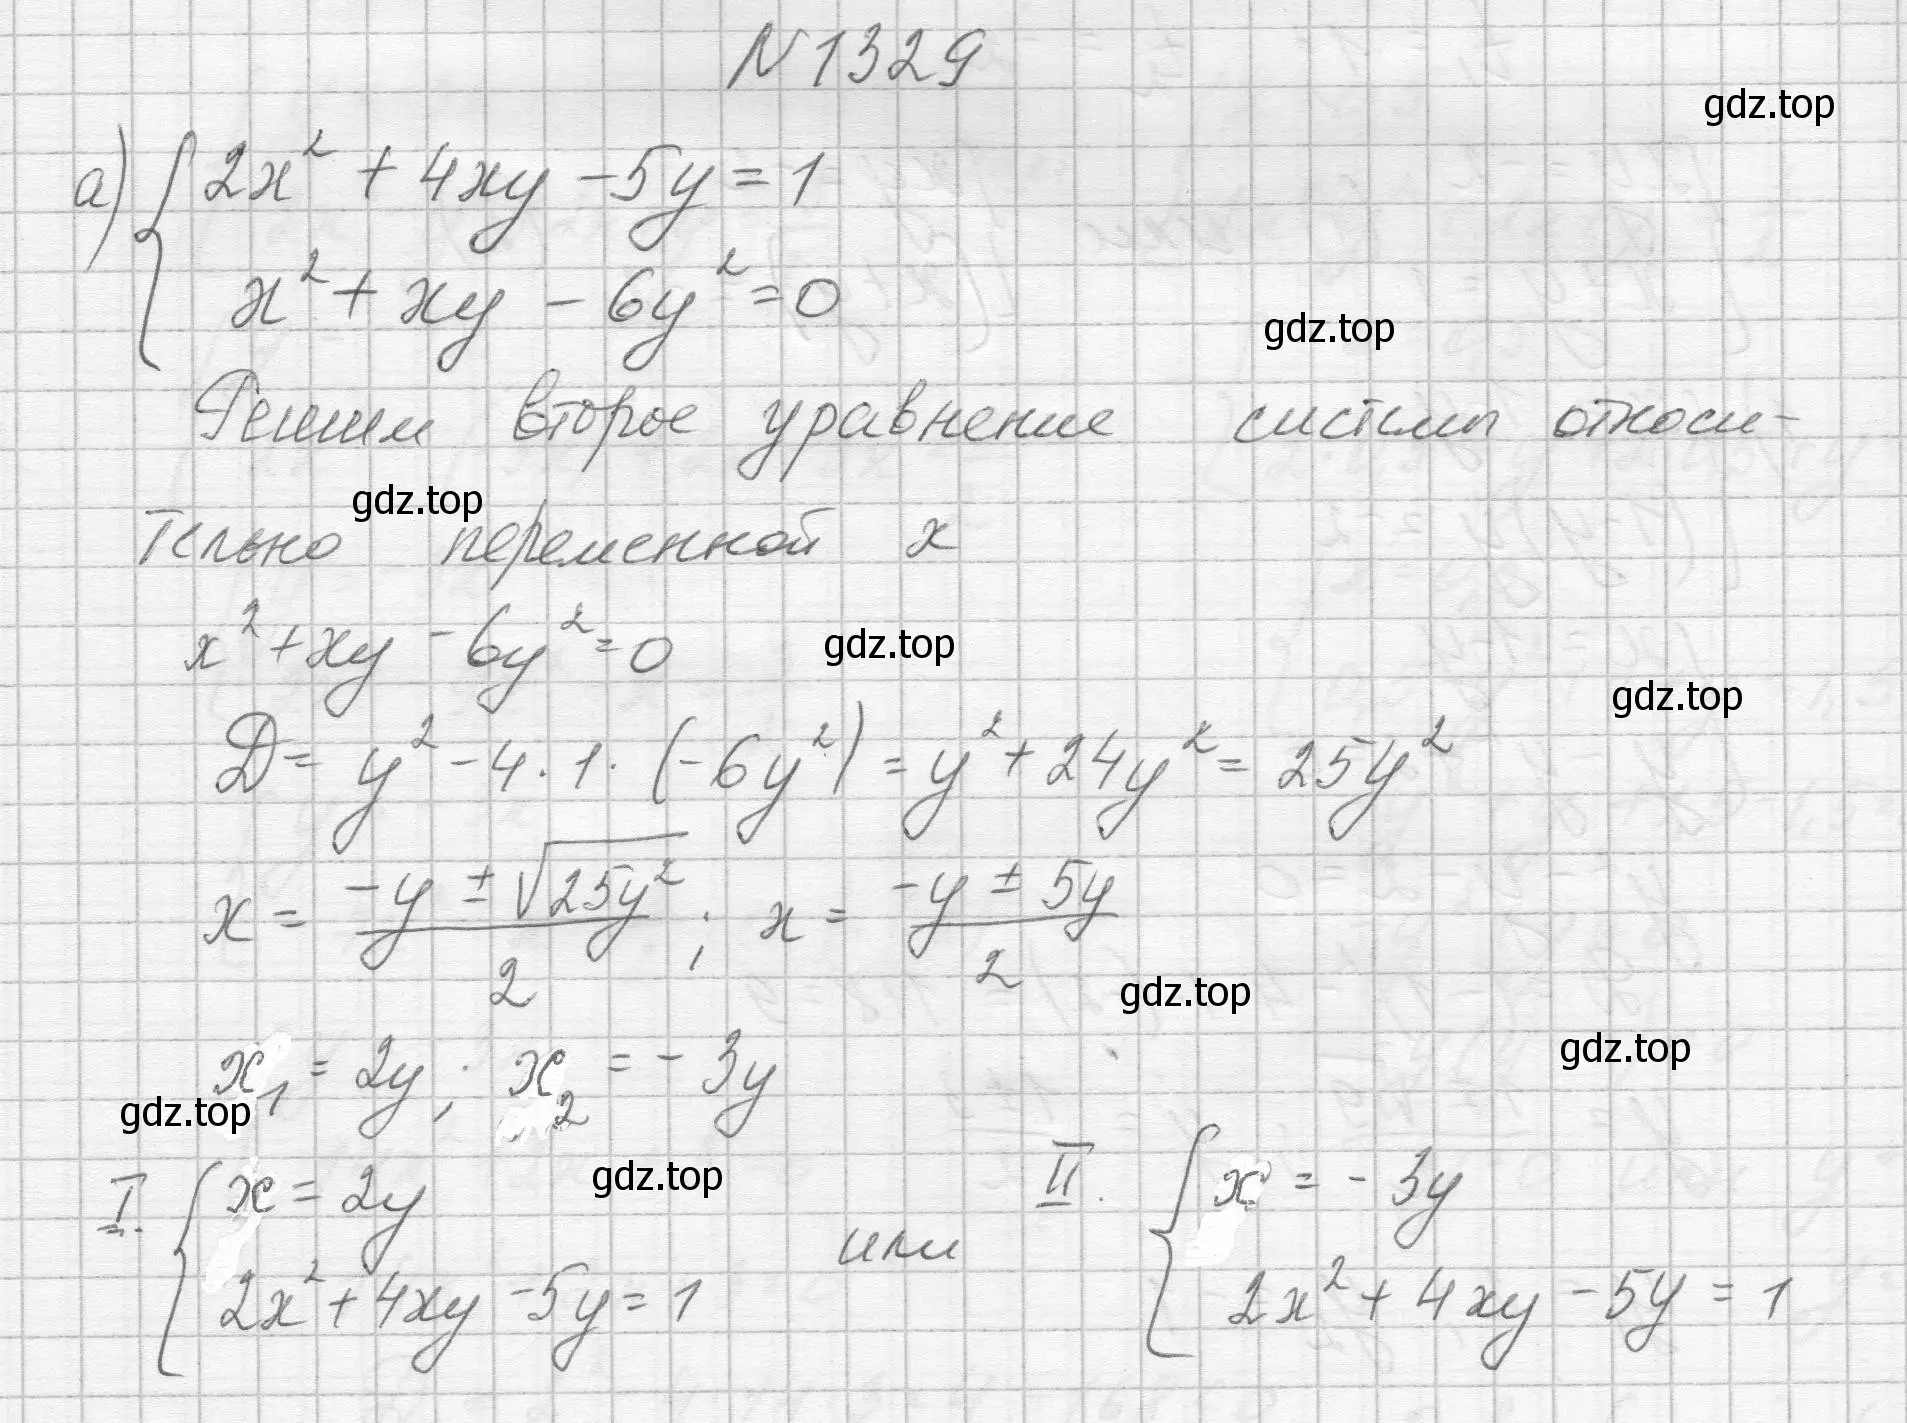 N 1329
gdz.top
а) { 2x² + 4xy - 5y = 1
x² + xy - 6y² = 0
gdz.top
Решим второе уравнение системы относи-
gdz.top
тельно переменной x
x² + xy - 6y² = 0
gdz.top
gdz.top
D = y² - 4 · 1 · (-6y²) = y² + 24y² = 25y²
x = (-y ± √25y²)/2 ; x = (-y ± 5y)/2
gdz.top
gdz.top
x₁ = 2y ; x₂ = - 3y
gdz.top
gdz.top
I. { x = 2y
2x² + 4xy - 5y = 1
или
II. { x = - 3y
2x² + 4xy - 5y = 1